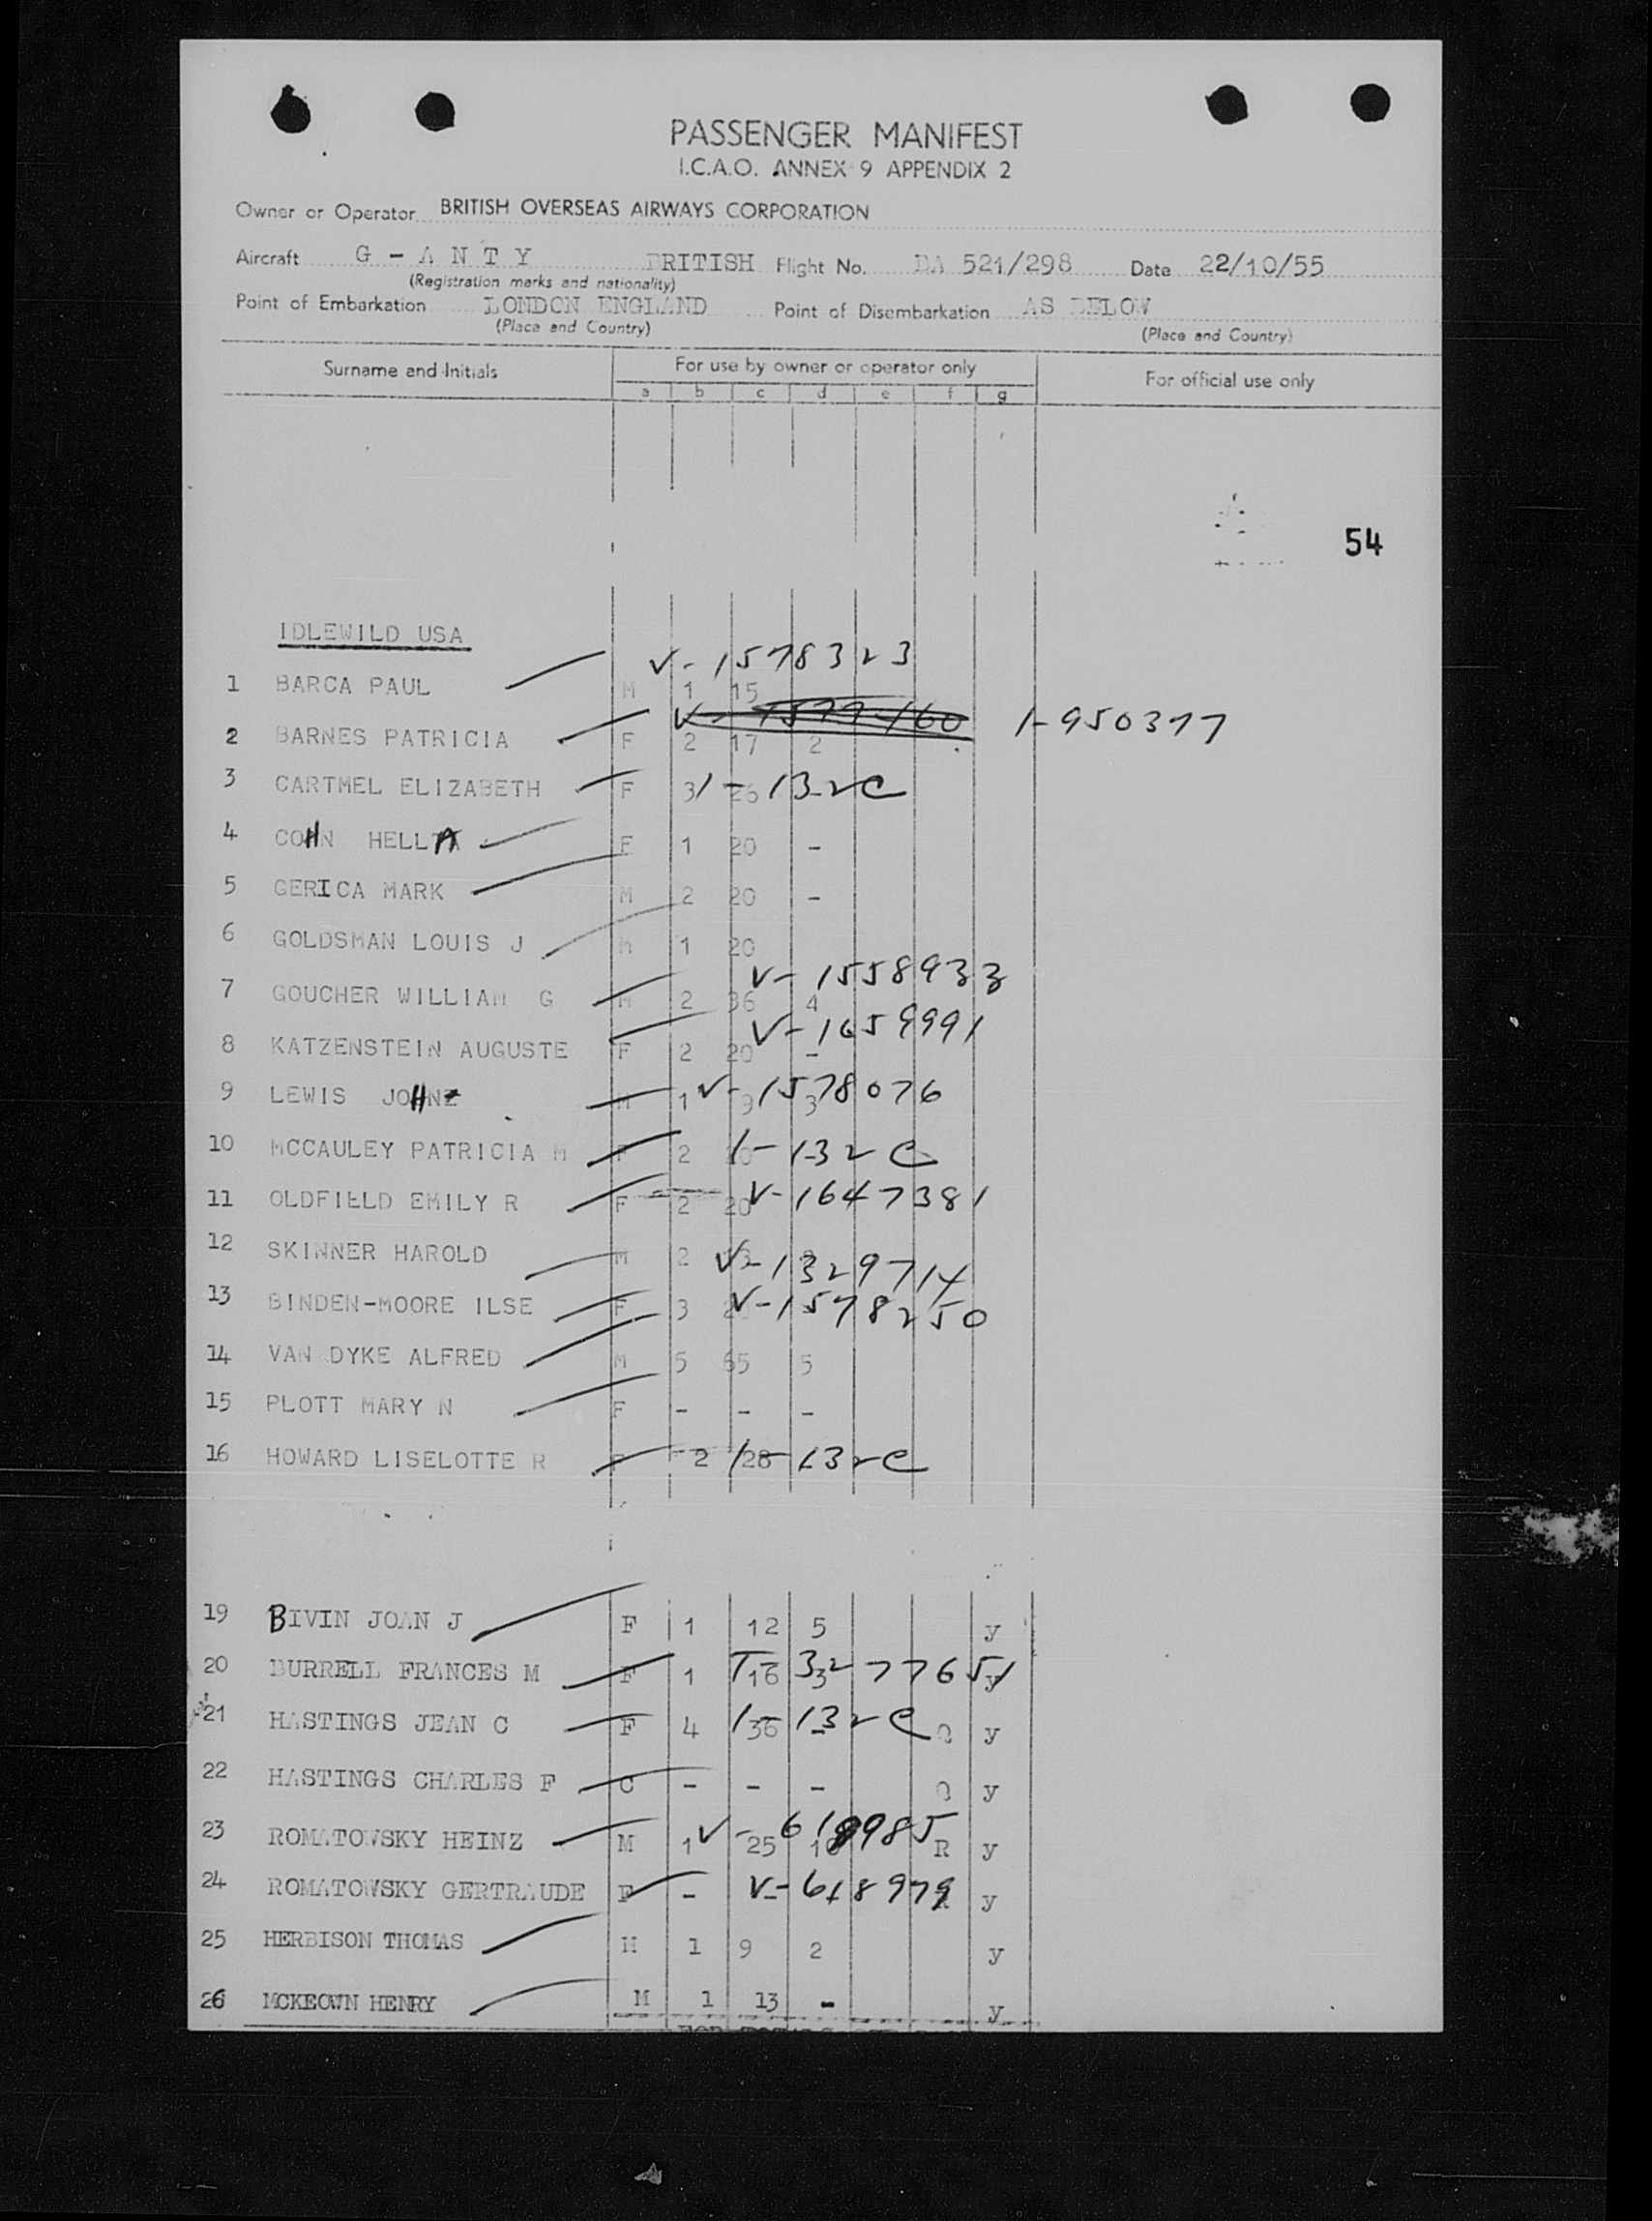 PASSENGER MANIFEST
I.C.A.O. ANNEX 9 APPENDIX 2
Owner or Operator BRITISH OVERSEAS AIRWAYS CORPORATION
Aircraft G - A N T Y BRITISH Flight No. BA 521/298 Date 22/10/55
(Registration marks and nationality)
Point of Embarkation LONDON ENGLAND Point of Disembarkation AS BELOW
(Place and Country) (Place and Country)
Surname and Initials For use by owner or operator only For official use only
a b c d e f g
54
IDLEWILD USA
V-1578323
1 BARCA PAUL M 1 15
1-950377
2 BARNES PATRICIA F 2 17 2
3 CARTMEL ELIZABETH F 3 26 - 1-132C
4 COHN HELLA F 1 20 -
5 GERICA MARK M 2 20 -
6 GOLDSMAN LOUIS J M 1 20
V-1558933
7 GOUCHER WILLIAM G M 2 36 4
V-1659991
8 KATZENSTEIN AUGUSTE F 2 20 -
9 LEWIS JOHN M 1 9 3 V-1578076
10 MCCAULEY PATRICIA M F 2 1-132C
11 OLDFIELD EMILY R F 2 20 V-1647381
12 SKINNER HAROLD M 2 V-1329714
13 BINDEN-MOORE ILSE F 3 V-1578250
14 VAN DYKE ALFRED M 5 65 5
15 PLOTT MARY N F - - -
16 HOWARD LISELOTTE R F 2 28 - 1-132C
19 BIVIN JOAN J F 1 12 5 y
20 BURRELL FRANCES M F 1 16 3 T-3277651 y
21 HASTINGS JEAN C F 4 36 - 1-132C Q y
22 HASTINGS CHARLES F C - - - Q y
23 ROMATOWSKY HEINZ M 1 25 V-618985 R y
24 ROMATOWSKY GERTRAUDE F - - V-618979 y
25 HERBISON THOMAS M 1 9 2 y
26 MCKEOWN HENRY M 1 13 - y